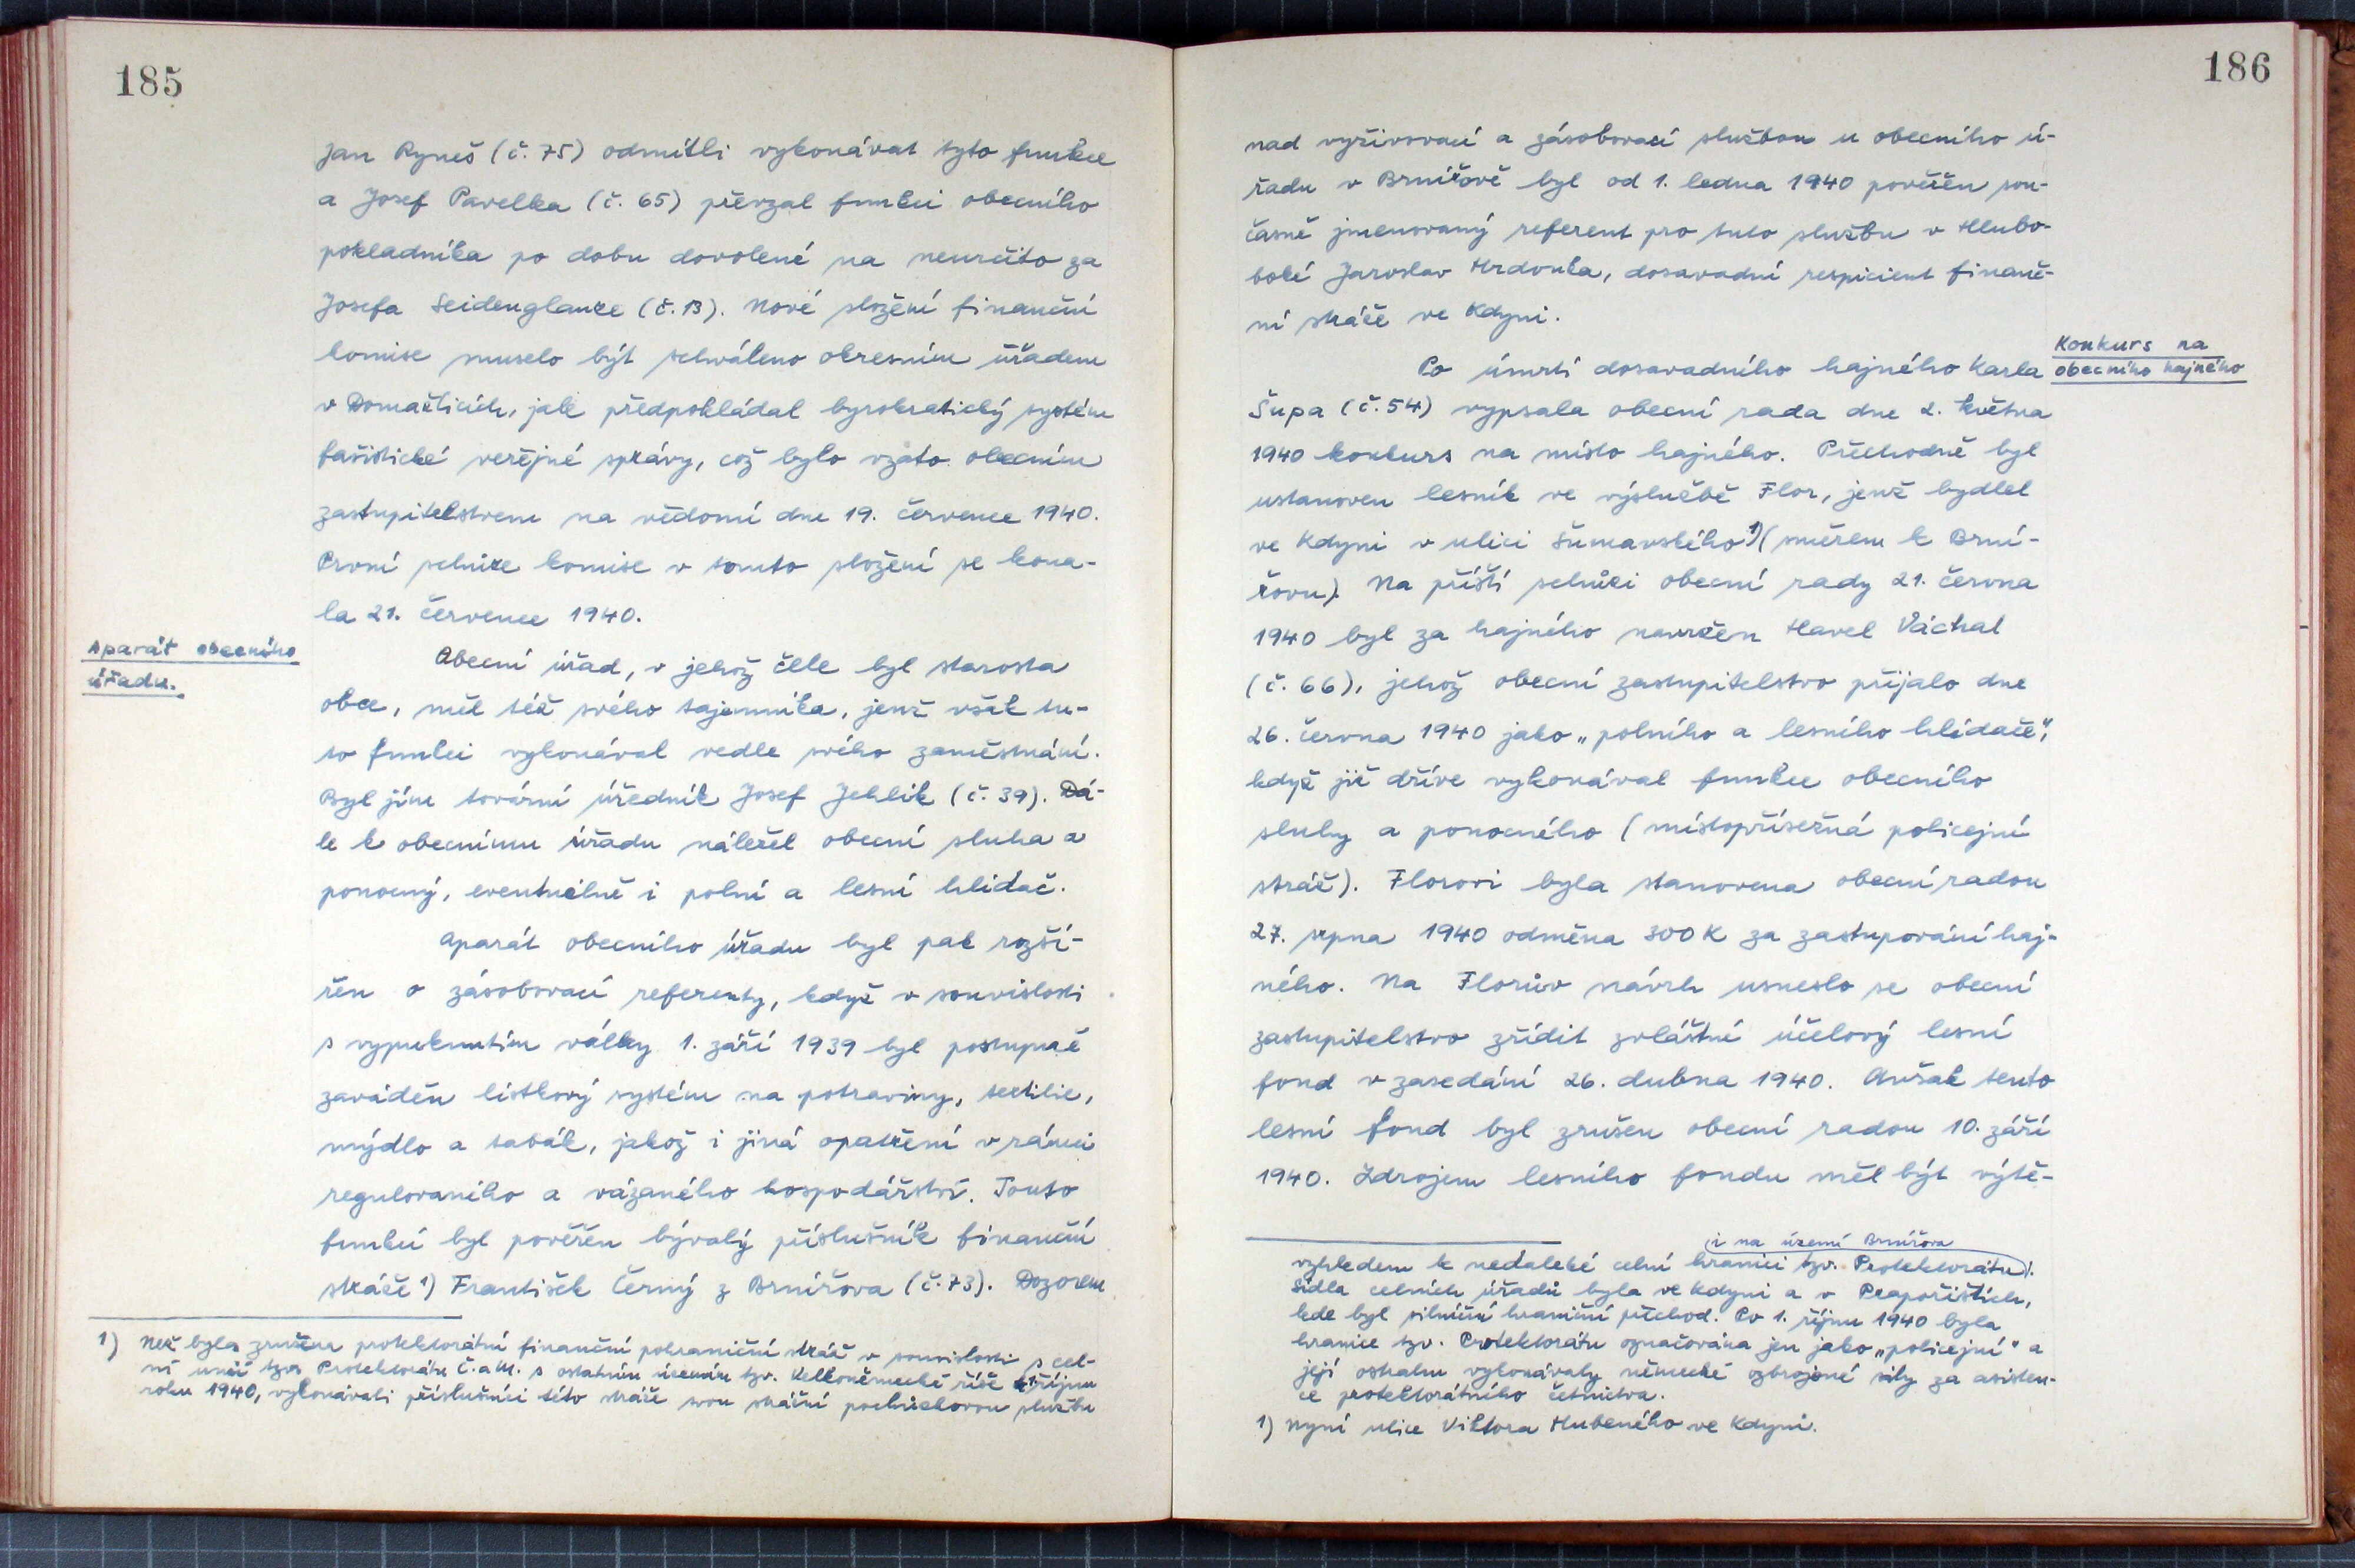 185
Jan Ryneš (č. 75) odmítli vykonávat tyto funkce
a Josef Pavelka (č. 65) převzal funkci obecního
pokladníka po dobu dovolené na neurčito za
Josefa Seidenglanze (č. 13). Nové složení finanční
komise muselo být schváleno okresním úřadem
v Domažlicích, jak předpokládal byrokratický systém
fašistické veřejné správy, což bylo vzato obecním
zastupitelstvem na vědomí dne 19. července 1940.
První schůze komise v tomto složení se kona-
la 21. července 1940.
Aparát obecního
úřadu.
Obecní úřad, v jehož čele byl starosta
obce, měl též svého tajemníka, jenž však tu-
to funkci vykonával vedle svého zaměstnání.
Byl jím tovární úředník Josef Jehlík (č. 39). Dá-
le k obecnímu úřadu náležel obecní sluha a
ponocný, eventuelně i polní a lesní hlídač.
Aparát obecního úřadu byl pak rozší-
řen o zásobovací referenty, když v souvislosti
s vypuknutím války 1. září 1939 byl postupně
zaváděn lístkový systém na potraviny, textilie,
mýdlo a tabák, jakož i jiná opatření v rámci
regulovaného a vázaného hospodářství. Touto
funkcí byl pověřen bývalý příslušník finanční
stráže 1) František Černý z Brnířova (č. 73). Dozorem
1) Než byla zrušena protektorátní finanční pohraniční stráž v souvislosti s cel-
ní unií tzv. Protektorátu Č. a M. s ostatním územím tzv. Velkoněmecké říše 1. října
roku 1940, vykonávali příslušníci této stráže svou strážní pochůzkovou službu
186
nad vyživovací a zásobovací službou u obecního ú-
řadu v Brnířově byl od 1. ledna 1940 pověřen sou-
časně jmenovaný referent pro tuto službu v Hlubo-
boké Jaroslav Hrdonka, dosavadní respicient finanč-
ní stráže ve Kdyni.
Konkurs na
obecního hajného
Po úmrtí dosavadního hajného Karla
Šupa (č. 54) vypsala obecní rada dne 2. května
1940 konkurs na místo hajného. Přechodně byl
ustanoven lesník ve výslužbě Flor, jenž bydlel
ve Kdyni v ulici Šumavského 1) (směrem k Brní-
řovu). Na příští schůzi obecní rady 21. června
1940 byl za hajného navržen Havel Váchal
(č. 66), jehož obecní zastupitelstvo přijalo dne
26. června 1940 jako „polního a lesního hlídače",
když již dříve vykonával funkce obecního
sluhy a ponocného (místopřísežná policejní
stráž). Florovi byla stanovena obecní radou
27. srpna 1940 odměna 300 K za zastupování haj-
ného. Na Florův návrh usneslo se obecní
zastupitelstvo zřídit zvláštní účelový lesní
fond v zasedání 26. dubna 1940. Avšak tento
lesní fond byl zrušen obecní radou 10. září
1940. Zdrojem lesního fondu měl být výtě-
i na území Brnířova
vzhledem k nedaleké celní hranici tzv. Protektorátu.
Sídla celních úřadů byla ve Kdyni a v Prapořištích,
kde byl silniční hraniční přechod. Po 1. říjnu 1940 byla
hranice tzv. Protektorátu označována jen jako „policejní" a
její ostrahu vykonávaly německé ozbrojené síly za asisten-
ce protektorátního četnictva.
1) Nyní ulice Viktora Hubeného ve Kdyni.